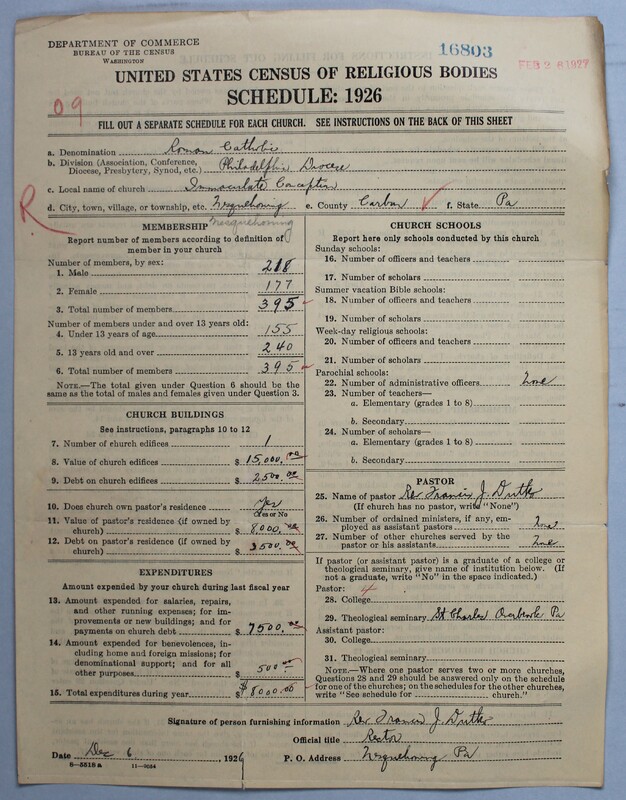 DEPARTMENT OF COMMERCE
BUREAU OF THE CENSUS
WASHINGTON
16803
FEB 26 1927
UNITED STATES CENSUS OF RELIGIOUS BODIES
SCHEDULE: 1926
09
FILL OUT A SEPARATE SCHEDULE FOR EACH CHURCH. SEE INSTRUCTIONS ON THE BACK OF THIS SHEET
a. Denomination Roman Catholic
b. Division (Association, Conference, Diocese, Presbytery, Synod, etc.) Philadelphia Diocese
c. Local name of church Immaculate Conception
d. City, town, village, or township, etc. Nesquehoning e. County Carbon f. State Pa
R
Nesquehoning
MEMBERSHIP
Report number of members according to definition of
member in your church
Number of members, by sex:
1. Male 218
2. Female 177
3. Total number of members 395
Number of members under and over 13 years old:
4. Under 13 years of age 155
5. 13 years old and over 240
6. Total number of members 395
NOTE.—The total given under Question 6 should be
same as the total of males and females given under Question 3.
CHURCH BUILDINGS
See instructions, paragraphs 10 to 12
7. Number of church edifices 1
8. Value of church edifices $ 15,000.00
9. Debt on church edifices $ 2500.00
10. Does church own pastor's residence Yes
Yes or No
11. Value of pastor's residence (if owned by
church) $ 8,000.00
12. Debt on pastor's residence (if owned by
church) $ 3500.00
EXPENDITURES
Amount expended by your church during last fiscal year
13. Amount expended for salaries, repairs,
and other running expenses; for im-
provements or new buildings; and for
payments on church debt $ 7500.00
14. Amount expended for benevolences, in-
cluding home and foreign missions; for
denominational support; and for all
other purposes $ 500.00
15. Total expenditures during year $ 8000.00
CHURCH SCHOOLS
Report here only schools conducted by this church
Sunday schools:
16. Number of officers and teachers
17. Number of scholars
Summer vacation Bible schools:
18. Number of officers and teachers
19. Number of scholars
Week-day religious schools:
20. Number of officers and teachers
21. Number of scholars
Parochial schools:
22. Number of administrative officers None
23. Number of teachers—
a. Elementary (grades 1 to 8)
b. Secondary
24. Number of scholars—
a. Elementary (grades 1 to 8)
b. Secondary
PASTOR
25. Name of pastor Rev. Francis J. Dutko
(If church has no pastor, write "None")
26. Number of ordained ministers, if any, em-
ployed as assistant pastors None
27. Number of other churches served by the
pastor or his assistants None
If pastor (or assistant pastor) is a graduate of a college or
theological seminary, give name of institution below. (If
not a graduate, write "No" in the space indicated.)
Pastor:
28. College
29. Theological seminary St Charles Overbrook Pa
Assistant pastor:
30. College
31. Theological seminary
NOTE.—Where one pastor serves two or more churches,
Questions 28 and 29 should be answered only on the schedule
for one of the churches; on the schedules for the other churches,
write "See schedule for church."
Signature of person furnishing information Rev Francis J. Dutko
Official title Rector
Date Dec 6, 1926 P. O. Address Nesquehoning Pa
8—5518 a 11—9024